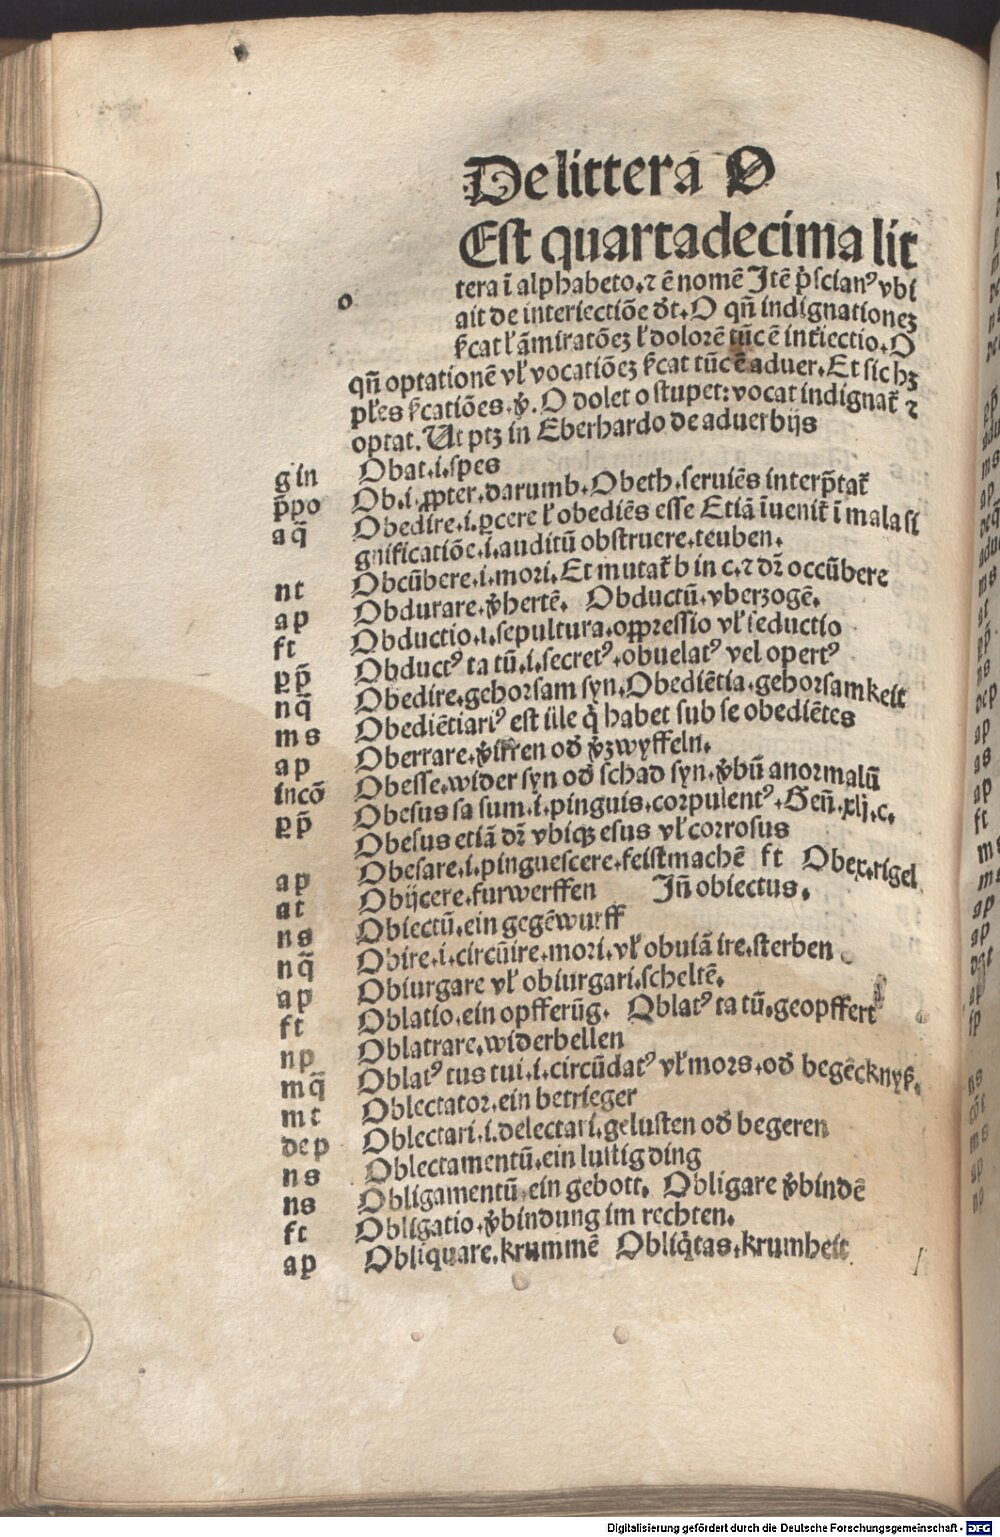 De littera O
Est quartadecima lit
o
tera ī alphabeto.⁊ ē nomē Itē p̄scianꝰ vbi
ait de interiectiōe dr̄t.O qn̄ indignationeꝫ
ẜcat ł āmiratōeꝫ ł dolorē tūc ē intˀiectio.O
qn̄ optationē vł vocatiōeꝫ ẜcat tūc ē aduer.Et sic hꝫ
płes ẜcatiōes.ꝟ.O dolet o stupet:vocat indignat᷑ ⁊
optat.Ut ptꝫ in Eberhardo de aduerbijs
g in Obat.i.spes
p̄po Ob.i.ꝓpter.darumb.Obeth.seruiēs interp̄tat᷑
aq̄ Obedire.i.ꝑcere ł obediēs esse Etiā īuenit᷑ ī mala si
gnificatiōe.i.auditū obstruere.teuben.
nt Obcūbere.i.mori.Et mutat᷑ b in c.⁊ dr̄ occūbere
ap Obdurare.ꝟhertē. Obductū.vberzogē.
ft Obductio.i.sepultura.oꝓpressio vł seductio
ꝑp̄ Obductꝰ ta tū.i.secretꝰ.obuelatꝰ vel opertꝰ
nq̄ Obedire.gehorsam syn.Obediētia.gehorsamkeit
ms Obediētiariꝰ est ille q̇ habet sub se obediētes
ap Oberrare.ꝟirren od᷑ ꝟzwyffeln.
incō Obesse.wider syn od᷑ schad syn.ꝟbū anormalū
ꝑp̄ Obesus sa sum.i.pinguis.corpulentꝰ.Gen̄.xlj.c.
Obesus etiā dr̄ vbiqꝫ esus vł corrosus
ap Obesare.i.pinguescere.feistmachē ft Obex.rigel
at Obijcere.furwerffen In̄ obiectus.
ns Obiectū.ein gegēwurff
nq̄ Obire.i.circūire.mori.vł obuiā ire.sterben
ap Obiurgare vł obiurgari.scheltē.
ft Oblatio.ein opfferūg. Oblatꝰ ta tū.geopffert
np Oblatrare.widerbellen
mq̄ Oblatꝰ tus tui.i.circūdatꝰ vł mors.od᷑ begēcknyß.
mt Oblectator.ein betrieger
dep Oblectari.i.delectari.gelusten od᷑ begeren
ns Oblectamentū.ein lustig ding
ns Obligamentū.ein gebott. Obligare ꝟbindē
ft Obligatio.ꝟbindung im rechten.
ap Obliquare.krummē Obliq̇tas.krumheit
Digitalisierung gefördert durch die Deutsche Forschungsgemeinschaft - DFG